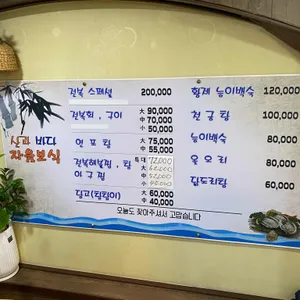 산과 바다
자음보식
전복 스페셜 200,000
전복회, 구이 大 90,000
中 70,000
小 50,000
연포탕 大 75,000
中 55,000
전복해물찜, 탕 특대 72,000
아구찜 大
中
小
(탕탕이) 大 60,000
中 40,000
황제 능이백숙 120,000
천궁탕 100,000
능이백숙 80,000
옻오리 80,000
닭도리탕 60,000
오늘도 찾아주셔서 고맙습니다